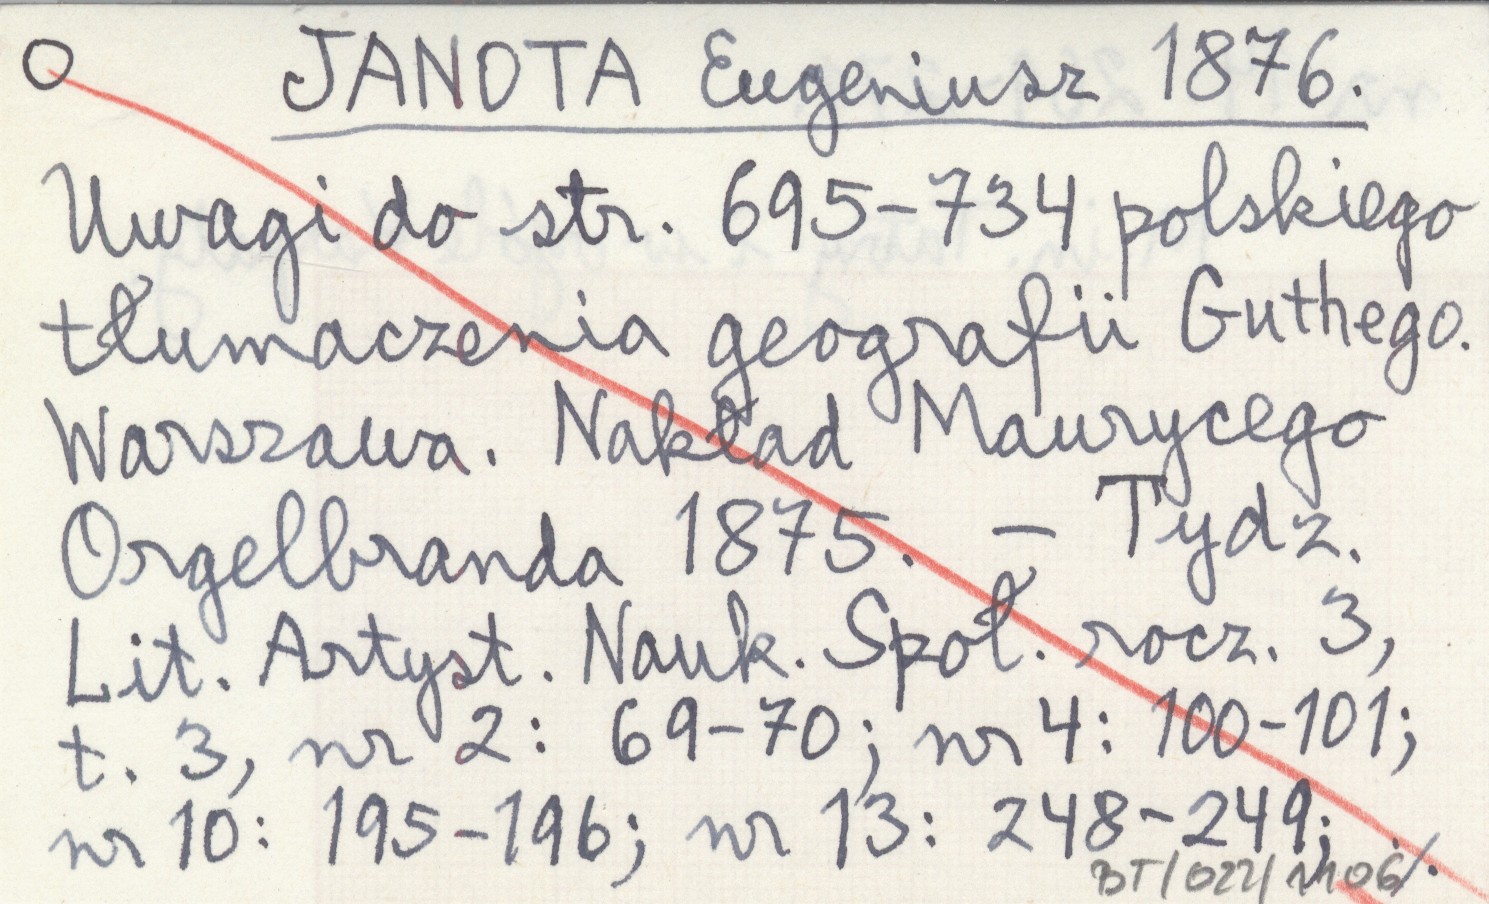 O JANOTA Eugeniusz 1876.
Uwagi do str. 695-734 polskiego
tłumaczenia geografii Guthego.
Warszawa. Nakład Maurycego
Orgelbranda 1875. – Tydz.
Lit. Artyst. Nauk. Społ. rocz. 3,
t. 3, nr 2: 69-70; nr 4: 100-101;
nr 10: 195-196; nr 13: 248-249; ./.
BT/022/